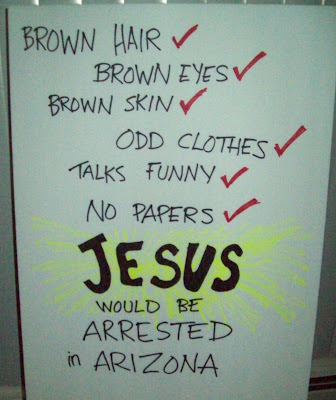 BROWN HAIR ✓
BROWN EYES ✓
BROWN SKIN ✓
ODD CLOTHES ✓
TALKS FUNNY ✓
NO PAPERS ✓
JESUS
WOULD BE
ARRESTED
in ARIZONA